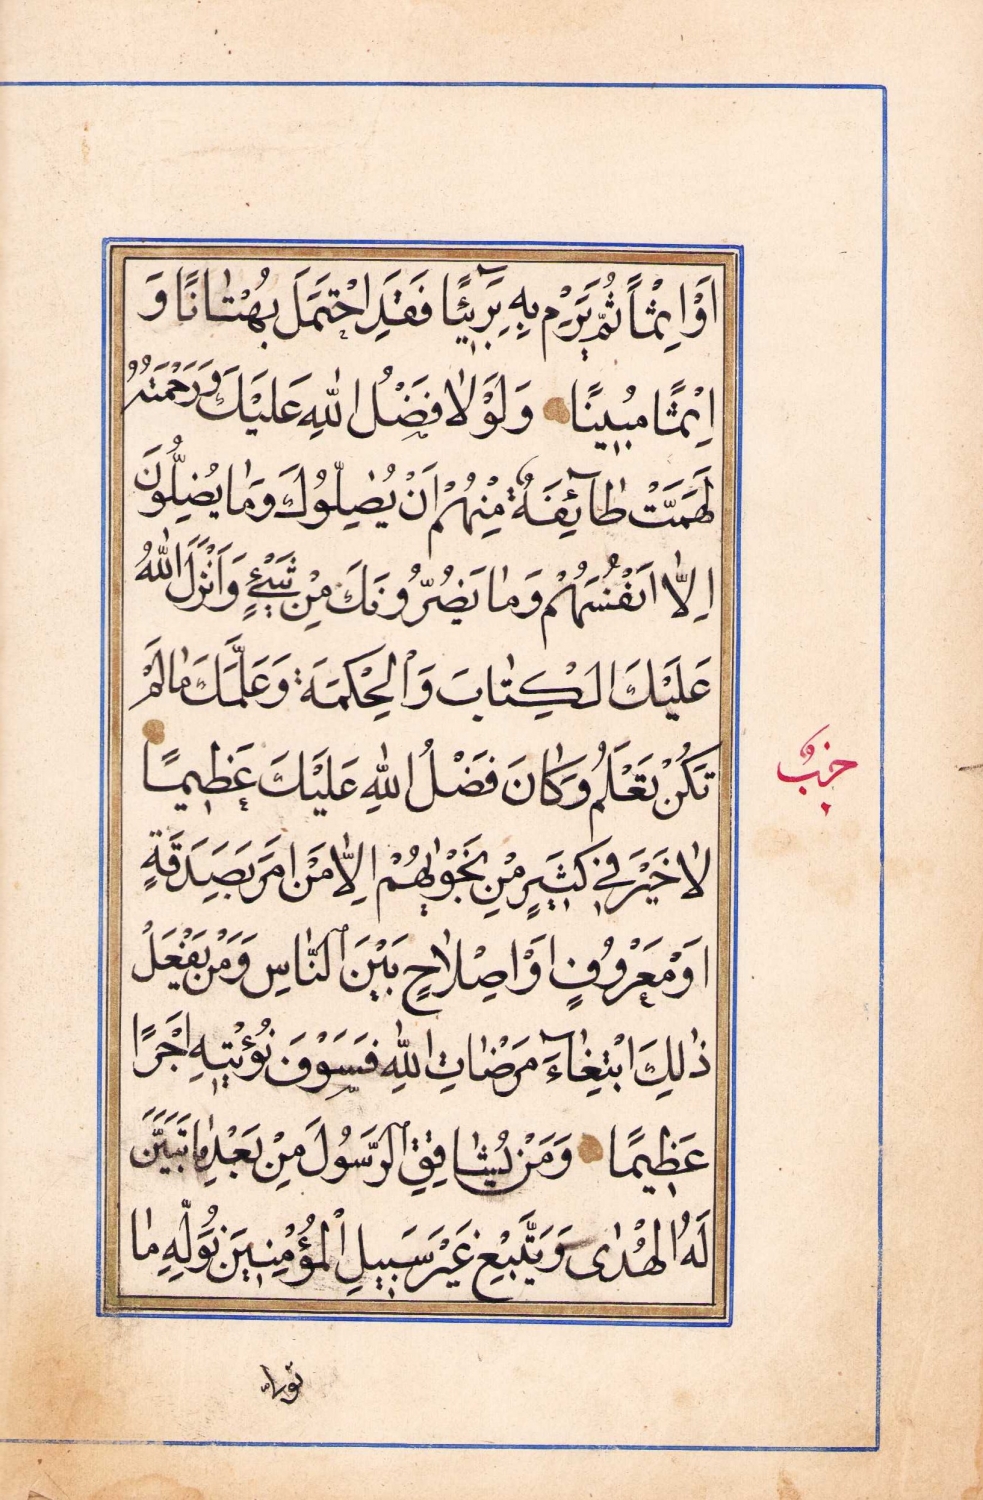 اَوْ اِثْمًا ثُمَّ يَرْمِ بِهِ بَرٖٓيئًا فَقَدِ احْتَمَلَ بُهْتَانًا وَ
اِثْمًا مُبٖينًا وَلَوْلَا فَضْلُ اللّٰهِ عَلَيْكَ وَرَحْمَتُهُ
لَهَمَّتْ طَآئِفَةٌ مِنْهُمْ اَنْ يُضِلُّوكَ وَمَا يُضِلُّونَ
اِلَّا اَنْفُسَهُمْ وَمَا يَضُرُّونَكَ مِنْ شَيْءٍ وَاَنْزَلَ اللّٰهُ
عَلَيْكَ الْكِتَابَ وَالْحِكْمَةَ وَعَلَّمَكَ مَا لَمْ
تَكُنْ تَعْلَمُ وَكَانَ فَضْلُ اللّٰهِ عَلَيْكَ عَظٖيمًا
حزب
لَا خَيْرَ فٖي كَثٖيرٍ مِنْ نَجْوٰيهُمْ اِلَّا مَنْ اَمَرَ بِصَدَقَةٍ
اَوْ مَعْرُوفٍ اَوْ اِصْلَاحٍ بَيْنَ النَّاسِ وَمَنْ يَفْعَلْ
ذٰلِكَ ابْتِغَآءَ مَرْضَاتِ اللّٰهِ فَسَوْفَ نُؤْتٖيهِ اَجْرًا
عَظٖيمًا وَمَنْ يُشَاقِقِ الرَّسُولَ مِنْ بَعْدِ مَا تَبَيَّنَ
لَهُ الْهُدٰى وَيَتَّبِعْ غَيْرَ سَبٖيلِ الْمُؤْمِنٖينَ نُوَلِّهِ مَا
تولى